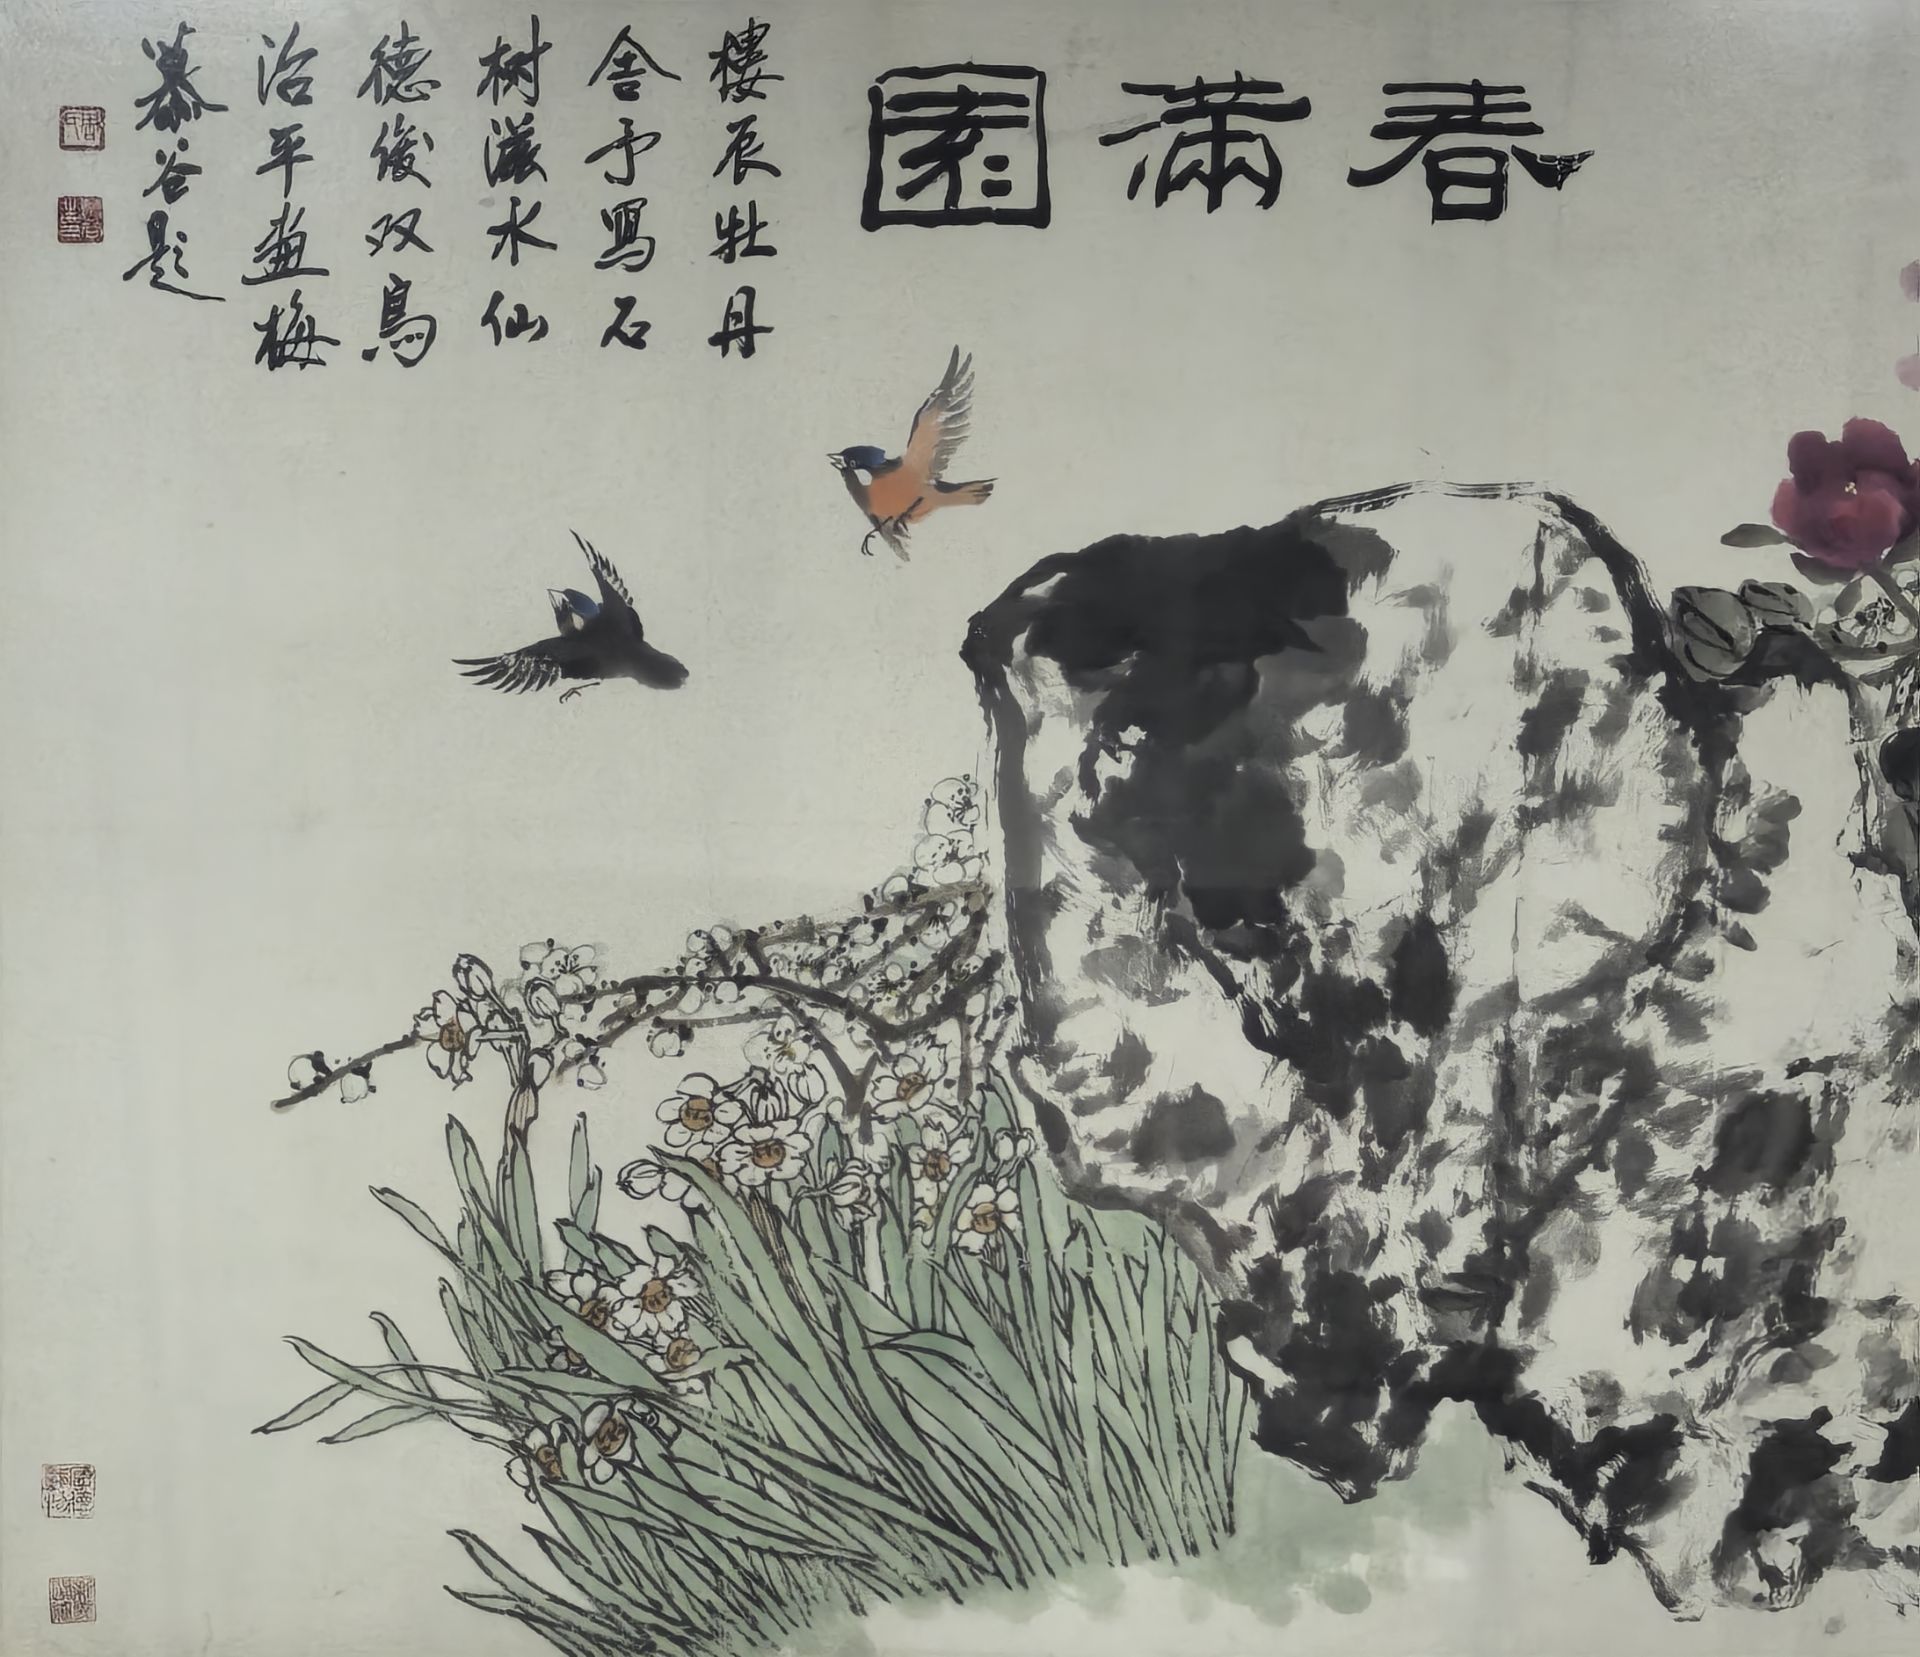 春滿園
樓辰牡丹
舍予寫石
樹滋水仙
德俊双鳥
治平畫梅
慕谷題